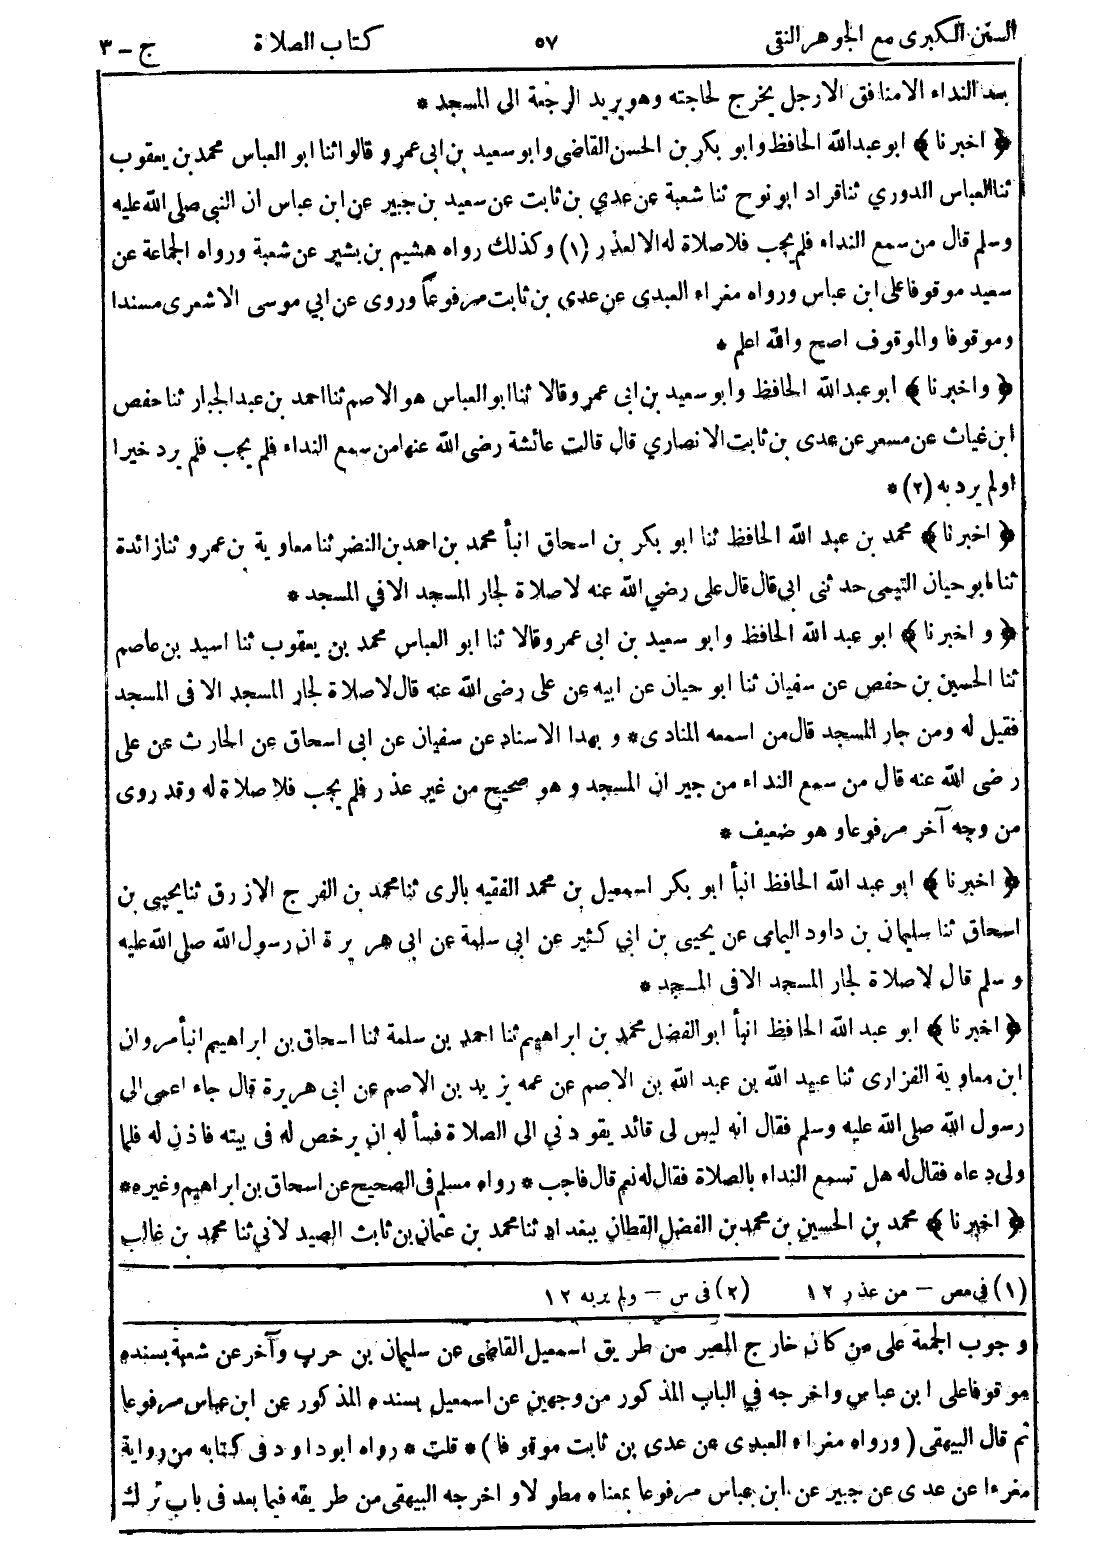 السنن الكبرى مع الجوهر النقى ٥٧ كتاب الصلاة ج - ٣
بعد النداء الا منافق الا رجل يخرج لحاجته وهو يريد الرجعة الى المسجد *
﴿ اخبرنا ﴾ ابو عبد الله الحافظ وابو بكر بن الحسن القاضى وابو سعيد بن ابى عمرو قالوا ثنا ابو العباس محمد بن يعقوب
ثنا العباس الدوري ثنا قراد ابو نوح ثنا شعبة عن عدي بن ثابت عن سعيد بن جبير عن ابن عباس ان النبى صلى الله عليه
وسلم قال من سمع النداء فلم يجب فلا صلاة له الا لعذر (١) وكذلك رواه هشيم بن بشير عن شعبة ورواه الجماعة عن
سعيد موقوفا على ابن عباس ورواه مغراء العبدى عن عدى بن ثابت مرفوعاً وروى عن ابي موسى الاشعرى مسندا
وموقوفا والموقوف اصح والله اعلم *
﴿ واخبرنا ﴾ ابو عبد الله الحافظ وابو سعيد بن ابى عمرو قالا ثنا ابو العباس هو الاصم ثنا احمد بن عبد الجبار ثنا حفص
ابن غياث عن مسعر عن عدى بن ثابت الانصاري قال قالت عائشة رضى الله عنها من سمع النداء فلم يجب فلم يرد خيرا
اولم يرد به (٢) *
﴿ اخبرنا ﴾ محمد بن عبد الله الحافظ ثنا ابو بكر بن اسحاق انبأ محمد بن احمد بن النضر ثنا معاوية بن عمرو ثنا زائدة
ثنا ابو حيان التيمى حدثنى ابي قال قال على رضي الله عنه لا صلاة لجار المسجد الا في المسجد *
﴿ و اخبرنا ﴾ ابو عبد الله الحافظ وابو سعيد بن ابى عمرو قالا ثنا ابو العباس محمد بن يعقوب ثنا اسيد بن عاصم
ثنا الحسين بن حفص عن سفيان ثنا ابو حيان عن ابيه عن على رضى الله عنه قال لا صلاة لجار المسجد الا فى المسجد
فقيل له ومن جار المسجد قال من اسمعه المنادى * و بهذا الاسناد عن سفيان عن ابى اسحاق عن الحارث عن على
رضى الله عنه قال من سمع النداء من جيران المسجد و هو صحيح من غير عذر فلم يجب فلا صلاة له وقد روى
من وجه آخر مرفوعا وهو ضعيف *
﴿ اخبرنا ﴾ ابو عبد الله الحافظ انبأ ابو بكر اسمعيل بن محمد الفقيه بالرى ثنا محمد بن الفرج الازرق ثنا يحيى بن
اسحاق ثنا سليمان بن داود اليمامى عن يحيى بن ابي كثير عن ابي سلمة عن ابى هريرة ان رسول الله صلى الله عليه
وسلم قال لا صلاة لجار المسجد الا فى المسجد *
﴿ اخبرنا ﴾ ابو عبد الله الحافظ انبأ ابو الفضل محمد بن ابراهيم ثنا احمد بن سلمة ثنا اسحاق بن ابراهيم انبأ مروان
ابن معاوية الفزارى ثنا عبيد الله بن عبد الله بن الاصم عن عمه يزيد بن الاصم عن ابى هريرة قال جاء اعمى الى
رسول الله صلى الله عليه وسلم فقال انه ليس لى قائد يقودني الى الصلاة فسأله ان يرخص له فى بيته فاذن له فلما
ولى دعاه فقال له هل تسمع النداء بالصلاة فقال له نعم قال فاجب * رواه مسلم فى الصحيح عن اسحاق بن ابراهيم وغيره *
﴿ اخبرنا ﴾ محمد بن الحسين بن محمد بن الفضل القطان ببغداد ثنا محمد بن عثمان بن ثابت الصيدلاني ثنا محمد بن غالب
(١) في مص - من عذر ١٢ (٢) فى س - ولم يربه ١٢
وجوب الجمعة على من كان خارج المصر من طريق اسمعيل القاضى عن سليمان بن حرب وآخر عن شعبة بسنده
موقوفا على ابن عباس واخرجه في الباب المذكور من وجهين عن اسمعيل بسنده المذكور عن ابن عباس مرفوعا
ثم قال البيهقى ( ورواه مغراء العبدى عن عدى بن ثابت موقوفا ) * قلت * رواه ابو داود فى كتابه من رواية
مغراء عن عدى عن جبير عن ابن عباس مرفوعا بمعناه مطولا واخرجه البيهقى من طريقه فيما بعد فى باب ترك